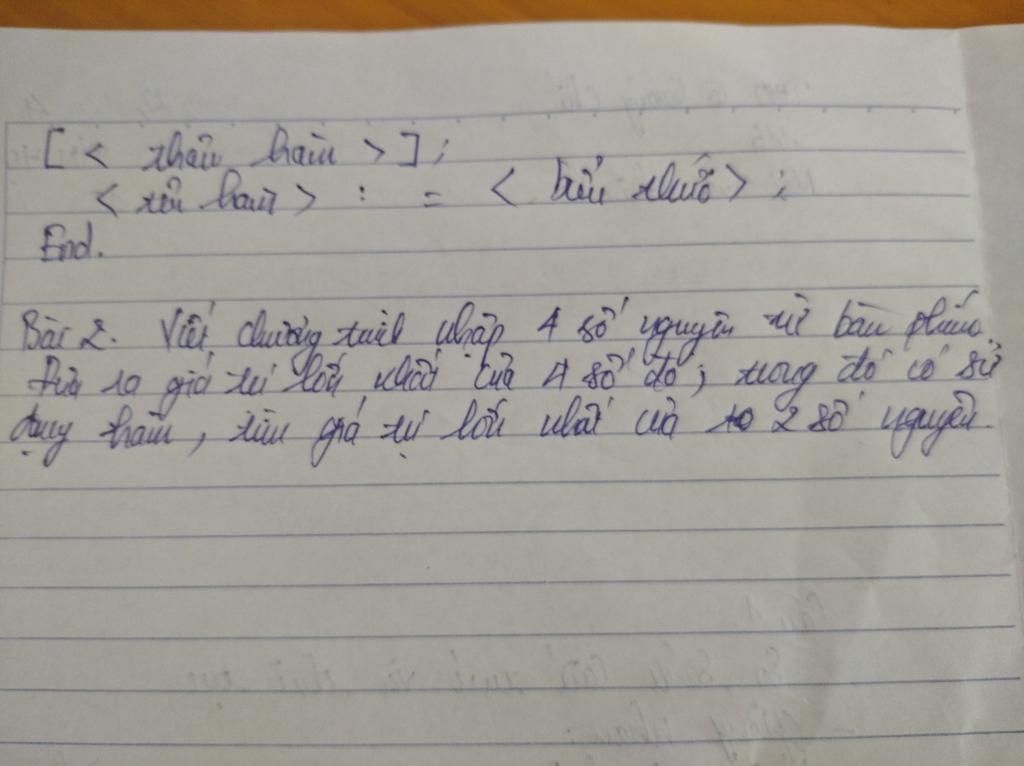 [ < thân hàm > ] ;
< tên hàm > : = < biểu thức > ;
End.
Bài 2. Viết chương trình nhập 4 số nguyên từ bàn phím.
Đưa ra giá trị lớn nhất của 4 số đó, trong đó có sử
dụng hàm, tìm giá trị lớn nhất của 2 số nguyên.